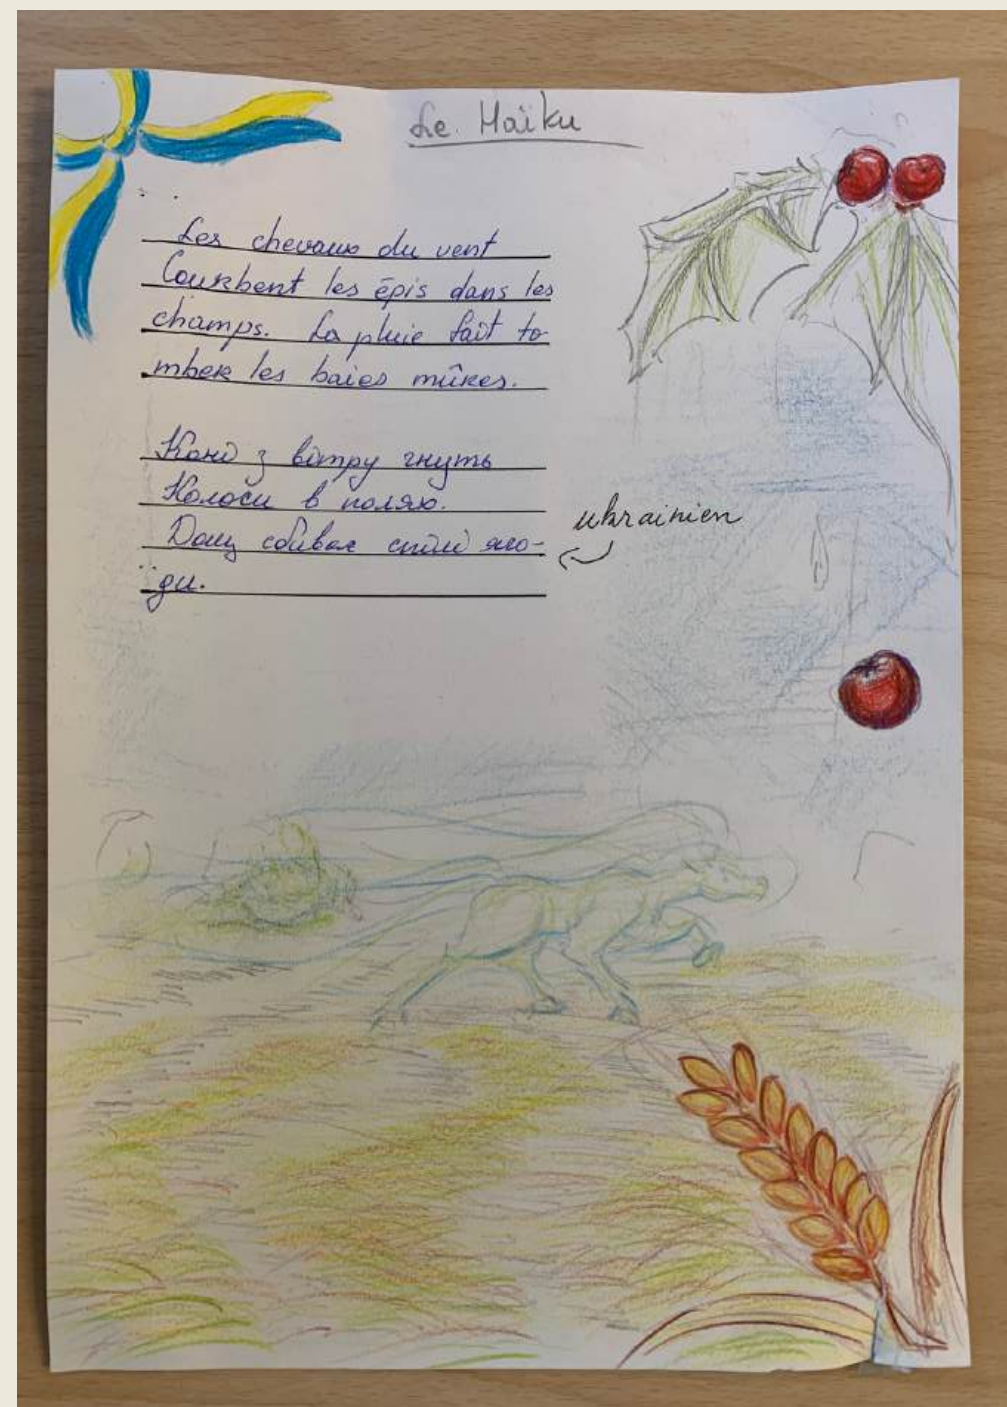 Le Haïku
Les chevaux du vent
Courbent les épis dans les
champs. La pluie fait to-
mber les baies mûres.
Коні з вітру гнуть
Колоси в полях.
Дощ збиває спілі яго-
ди.
ukrainien